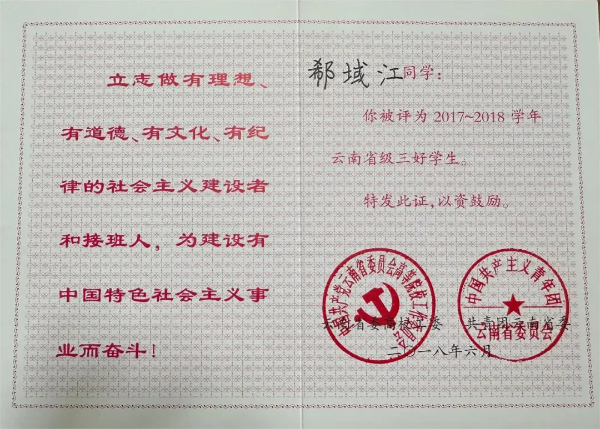 立志做有理想、
有道德、有文化、有纪
律的社会主义建设者
和接班人，为建设有
中国特色社会主义事
业而奋斗！
郗域江同学：
你被评为2017~2018学年
云南省级三好学生。
特发此证，以资鼓励。
中国共产党云南省委员会高等院校工作委员会
中国共产主义青年团
云南省委员会
云南省委高校工委 共青团云南省委
二〇一八年六月